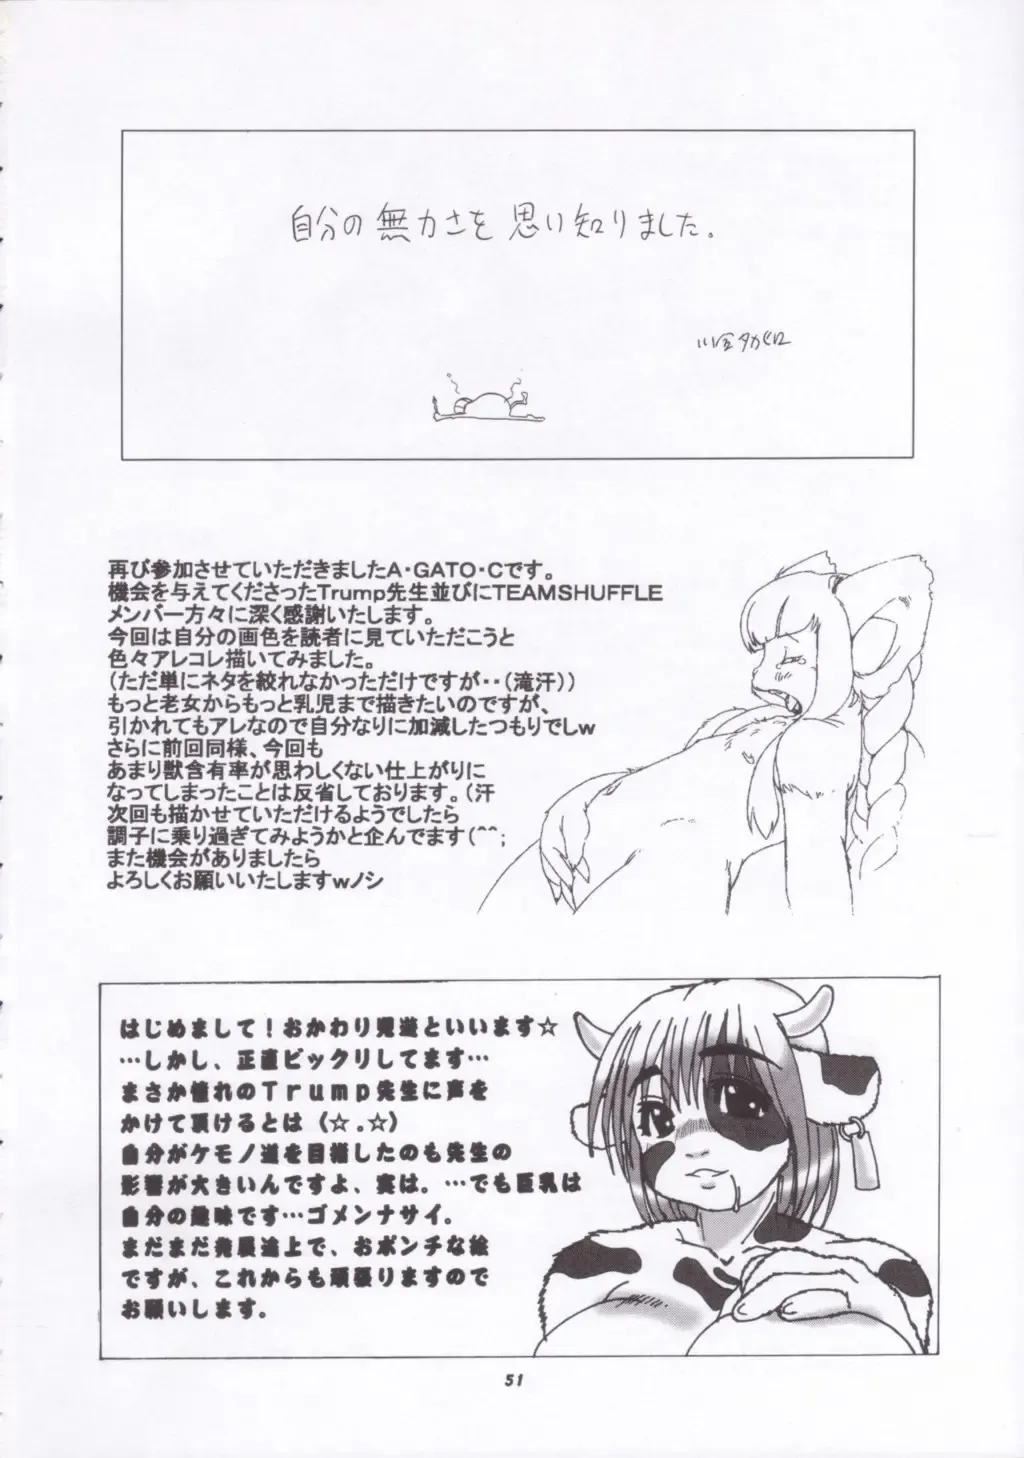 自分の無力さを思い知りました。
再び参加させていただきましたA・GATO・Cです。
機会を与えてくださったTrump先生並びにTEAMSHUFFLE
メンバー方々に深く感謝いたします。
今回は自分の画色を読者に見ていただこうと
色々アレコレ描いてみました。
(ただ単にネタを絞れなかっただけですが・・(滝汗))
もっと老女からもっと乳児まで描きたいのですが、
引かれてもアレなので自分なりに加減したつもりでしw
さらに前回同様、今回も
あまり獣含有率が思わしくない仕上がりに
なってしまったことは反省しております。(汗
次回も描かせていただけるようでしたら
調子に乗り過ぎてみようかと企んでます(^^;
また機会がありましたら
よろしくお願いいたしますwノシ
はじめまして!おかわり児遊といいます☆
…しかし、正直ビックリしてます…
まさか憧れのTrump先生に声を
かけて頂けるとは(☆.☆)
自分がケモノ道を目指したのも先生の
影響が大きいんですよ、実は。…でも巨乳は
自分の趣味です…ゴメンナサイ。
まだまだ発展途上で、おポンチな絵
ですが、これからも頑張りますので
お願いします。
51